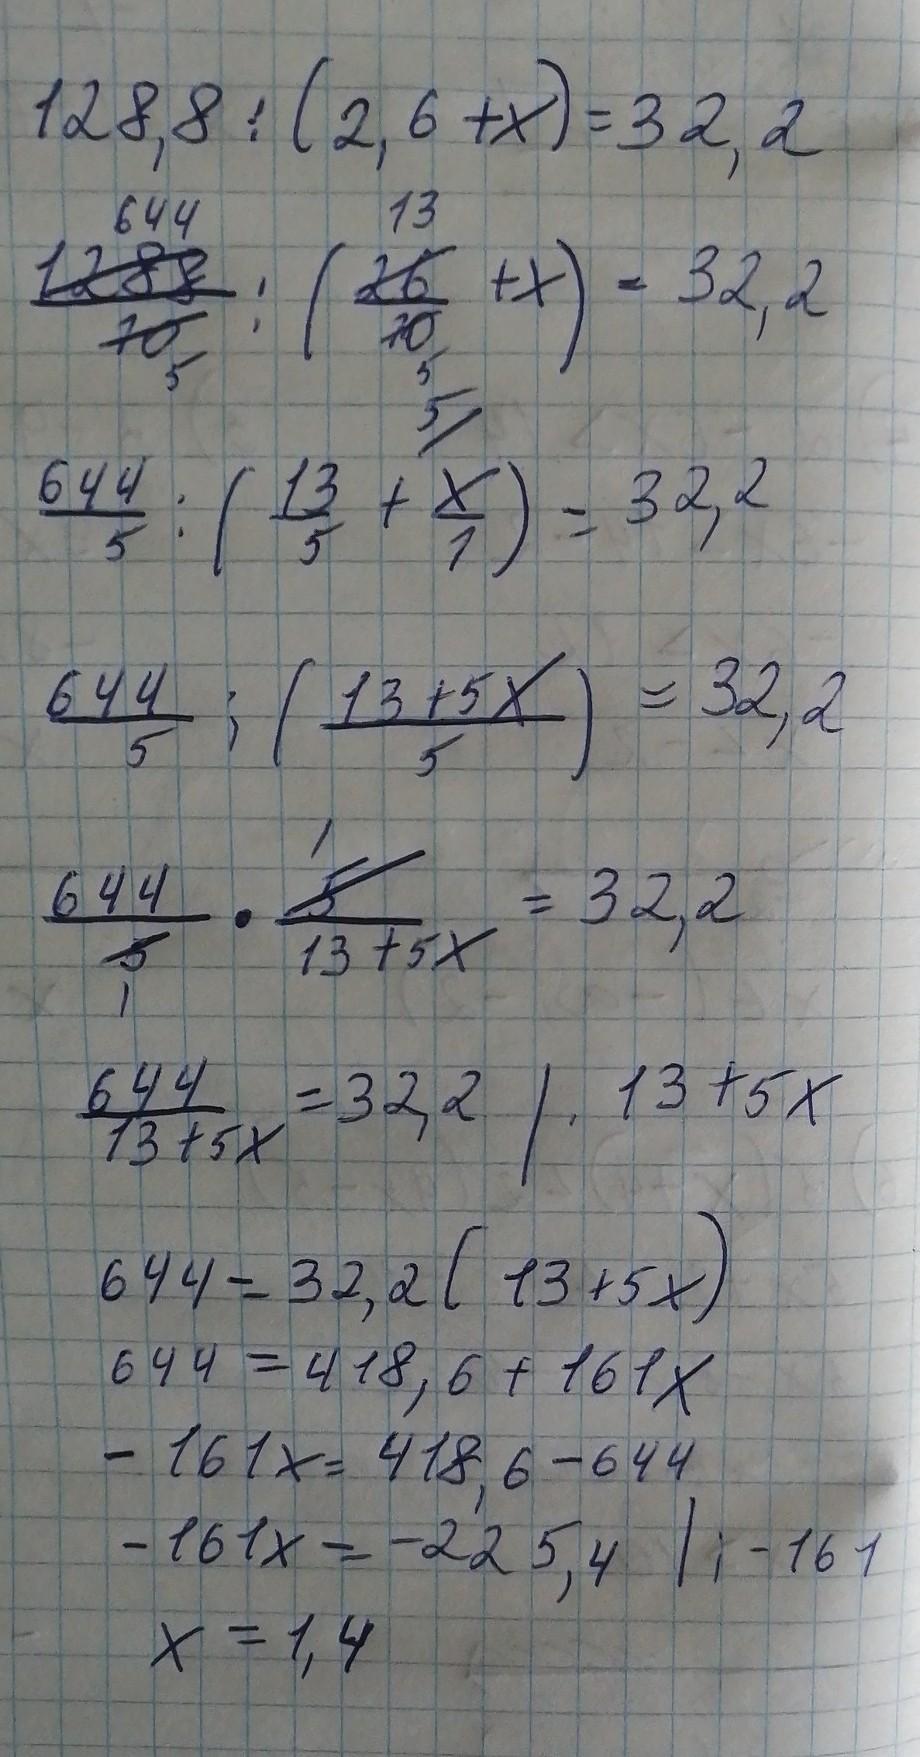 128,8 : (2,6 + x) = 32,2
644 13
1288/10 : (26/10 + x) = 32,2
5 5
5
644/5 : (13/5 + x/1) = 32,2
644/5 : (13+5x/5) = 32,2
1
644/5 · 5/13+5x = 32,2
1
644/13+5x = 32,2 | · 13+5x
644 = 32,2 (13+5x)
644 = 418,6 + 161x
- 161x = 418,6 - 644
- 161x = -225,4 | : -161
x = 1,4